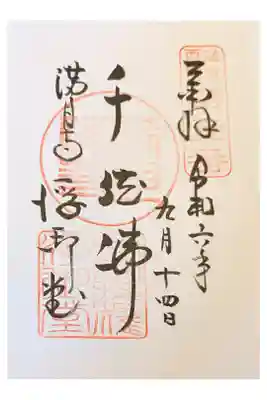 奉拝
令和六年
九月十四日
千体佛
満月寺
浮御堂